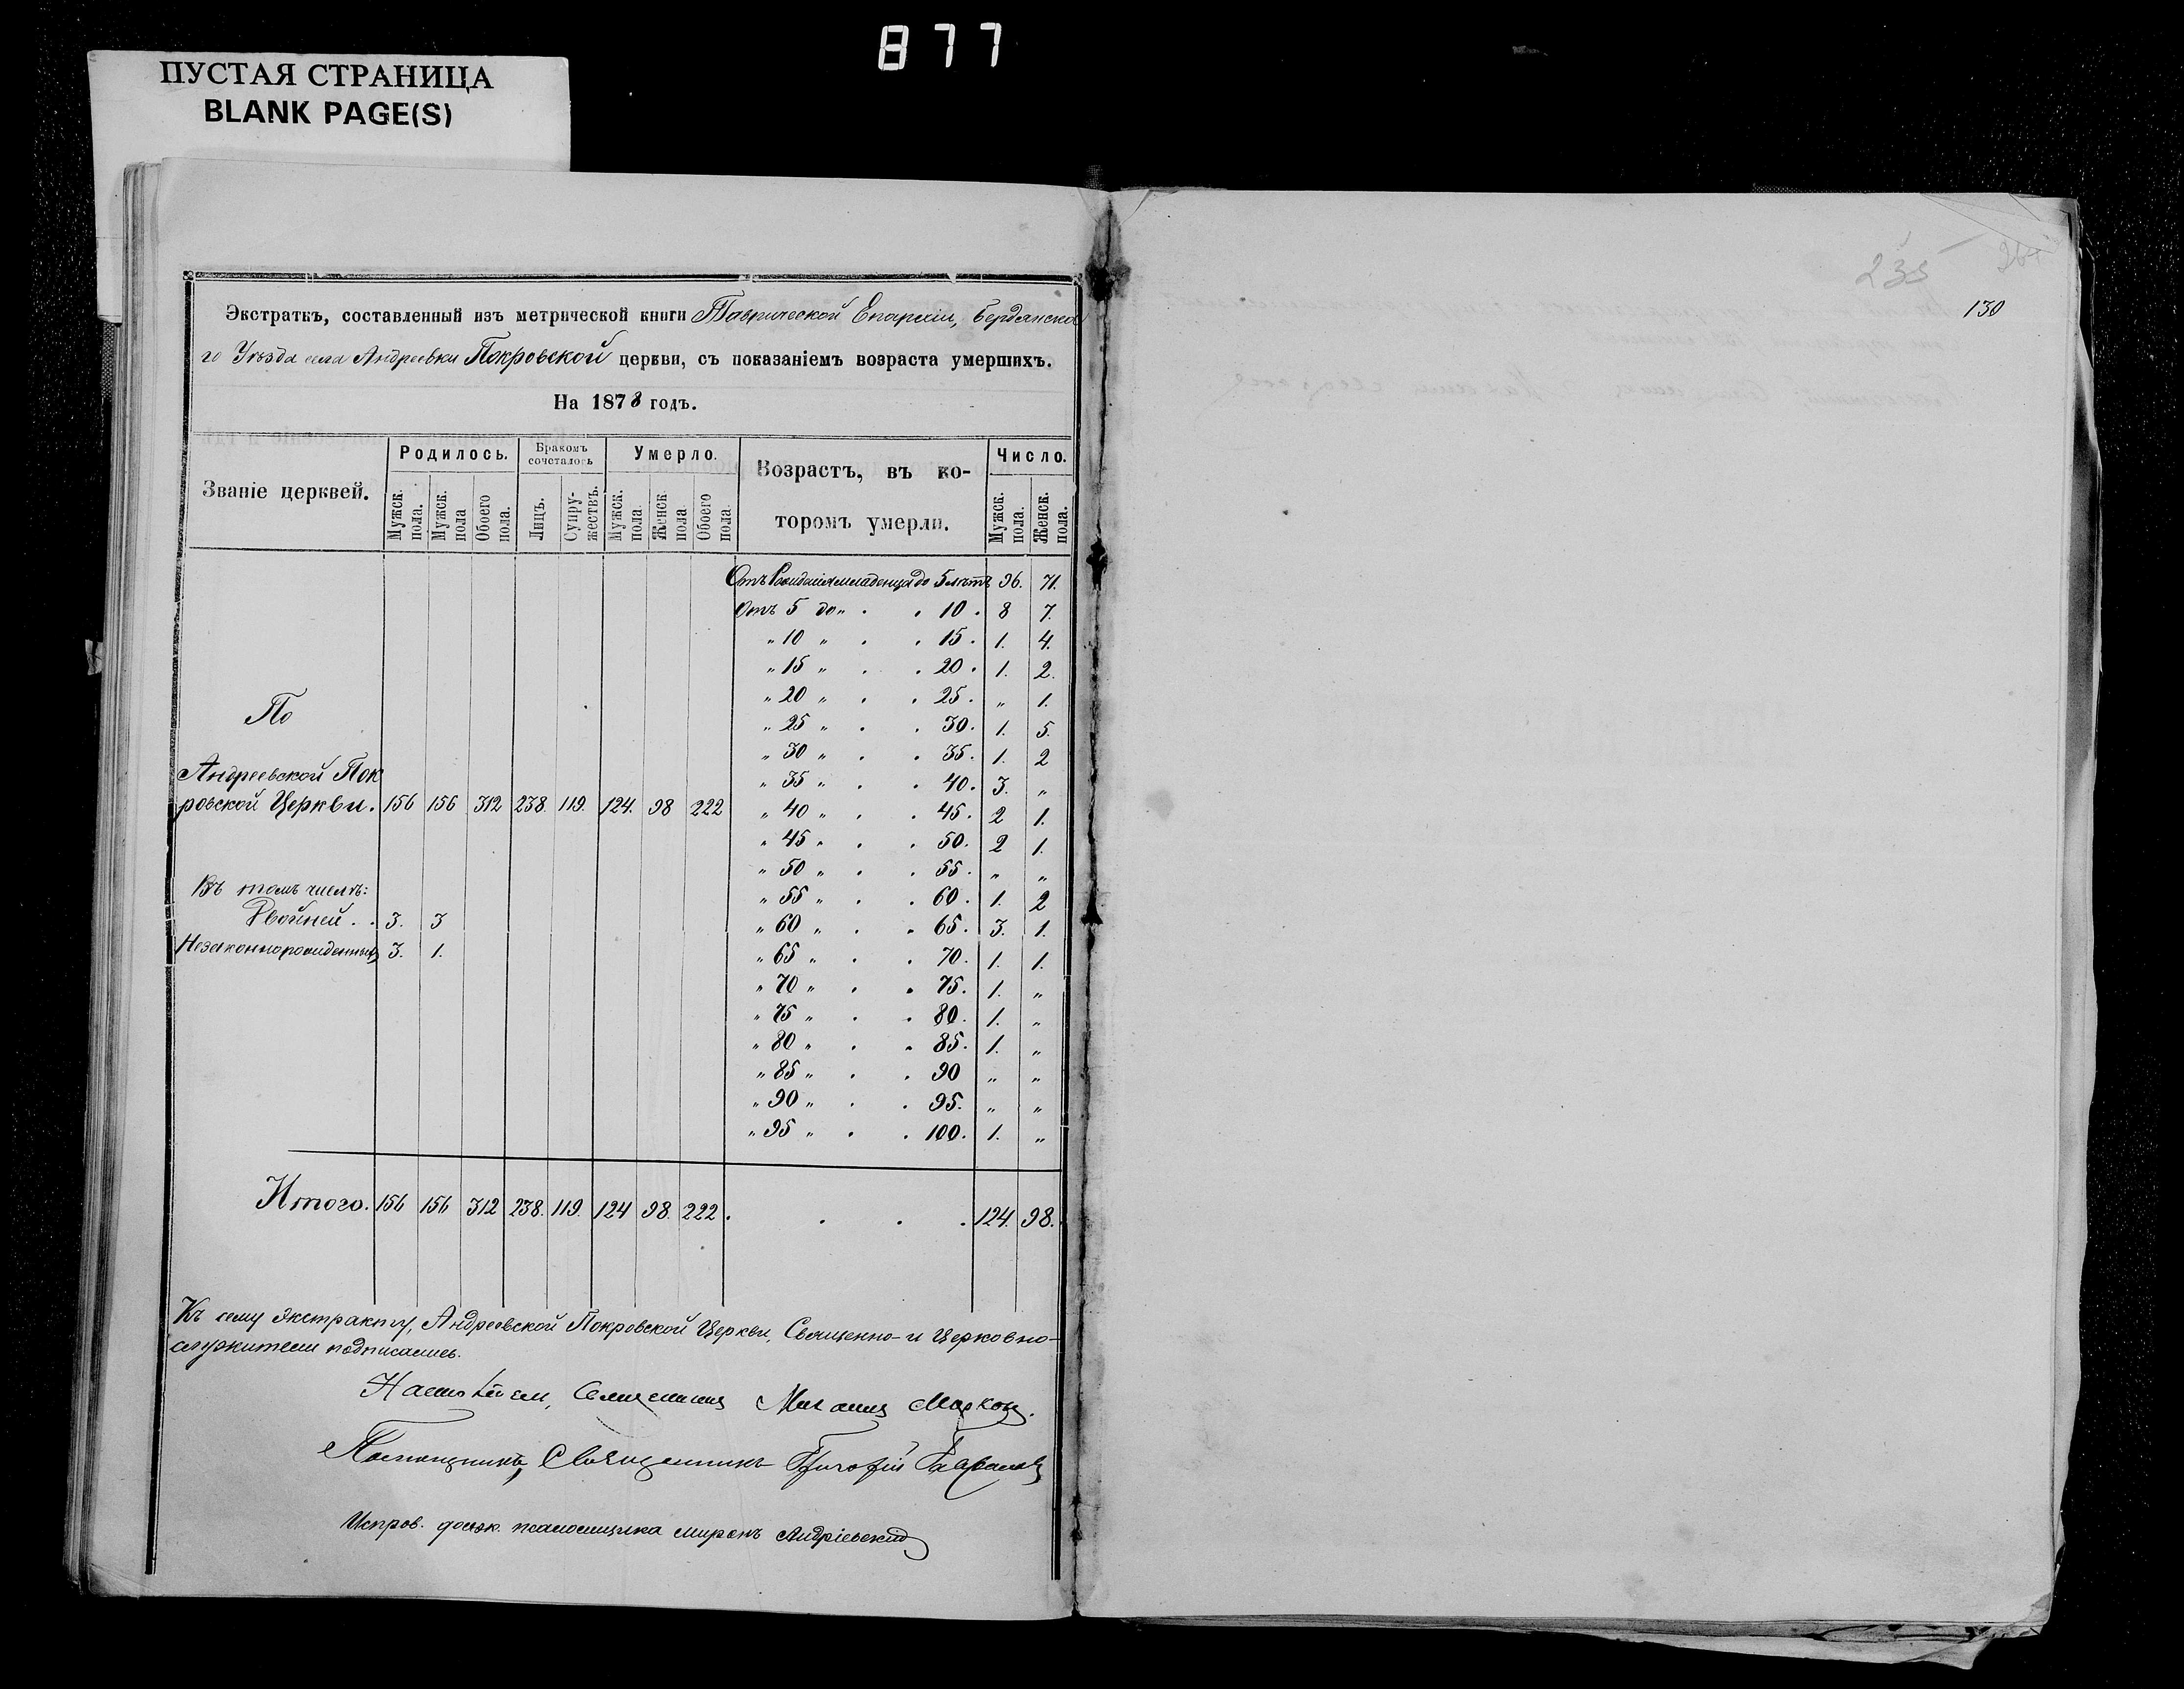 877
ПУСТАЯ СТРАНИЦА
BLANK PAGE(S)
Экстрактъ, составленный изъ метрической книги Таврической Епархіи, Бердянска
го Уѣзда села Андреевки Покровской церкви, съ показаніемъ возраста умершихъ.
На 1878 годъ.
Званіе церквей. Родилось. Бракомъ сочеталось Умерло. Возрастъ, въ ко- Число.
торомъ умерли.
Мужск. пола. Мужск. пола Обоего пола. Лицъ. Супру-жествъ. Мужск. пола. Женск. пола Обоего пола. Мужск. пола. Женск. пола.
Отъ Рожденія младенца до 5 лѣтъ 96. 71.
Отъ 5 до „ . . 10 . 8 7.
„ 10 „ . . 15 . 1. 4.
„ 15 „ . . 20 . 1. 2.
„ 20 „ . . 25 . „ 1.
„ 25 „ . . 30 . 1. 5.
„ 30 „ . . 35 . 1. 2
„ 35 „ . . 40 . 3. „
„ 40 „ . . 45 . 2 1.
„ 45 „ . . 50 . 2 1.
„ 50 „ . . 55 . „ „
„ 55 „ . . 60 . 1. 2
„ 60 „ . . 65 . 3. 1.
„ 65 „ . . 70 . 1. 1.
„ 70 „ . . 75 . 1. „
„ 75 „ . . 80 . 1. „
„ 80 „ . . 85 . 1. „
„ 85 „ . . 90 „ „
„ 90 „ . . 95 . „ „
„ 95 „ . . 100 . 1. „
По
Андреевской Пок
ровской Церкви. 156 156 312 238. 119. 124. 98 222
Въ томъ числѣ:
Двойней . . 3. 3
Незаконнорожденныхъ 3. 1.
Итого. 156 156 312 238. 119. 124 98. 222 . . . . 124. 98.
Къ сему Экстракту, Андреевской Покровской Церкви, Священно- и Церковно-
служители подписались.
Настоятель, Священникъ Михаилъ Марковъ.
Помощникъ, Священникъ Григорій
Исправ. долж. псаломщика Миронъ Андріевскій
235
130